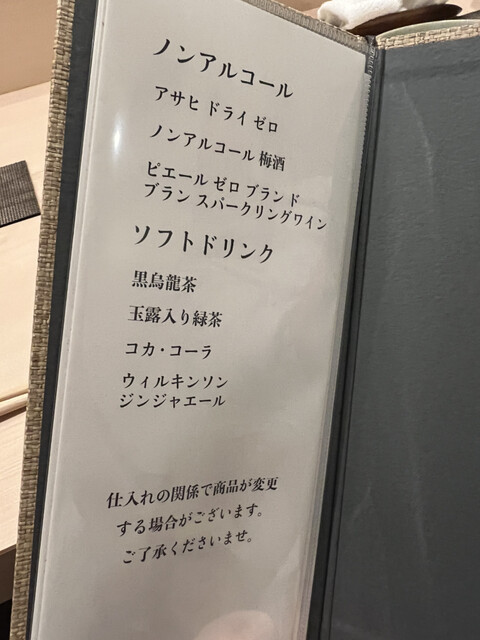 ノンアルコール
アサヒ ドライ ゼロ
ノンアルコール 梅酒
ピエール ゼロ ブランド
ブラン スパークリングワイン
ソフトドリンク
黒烏龍茶
玉露入り緑茶
コカ・コーラ
ウィルキンソン
ジンジャエール
仕入れの関係で商品が変更
する場合がございます。
ご了承くださいませ。